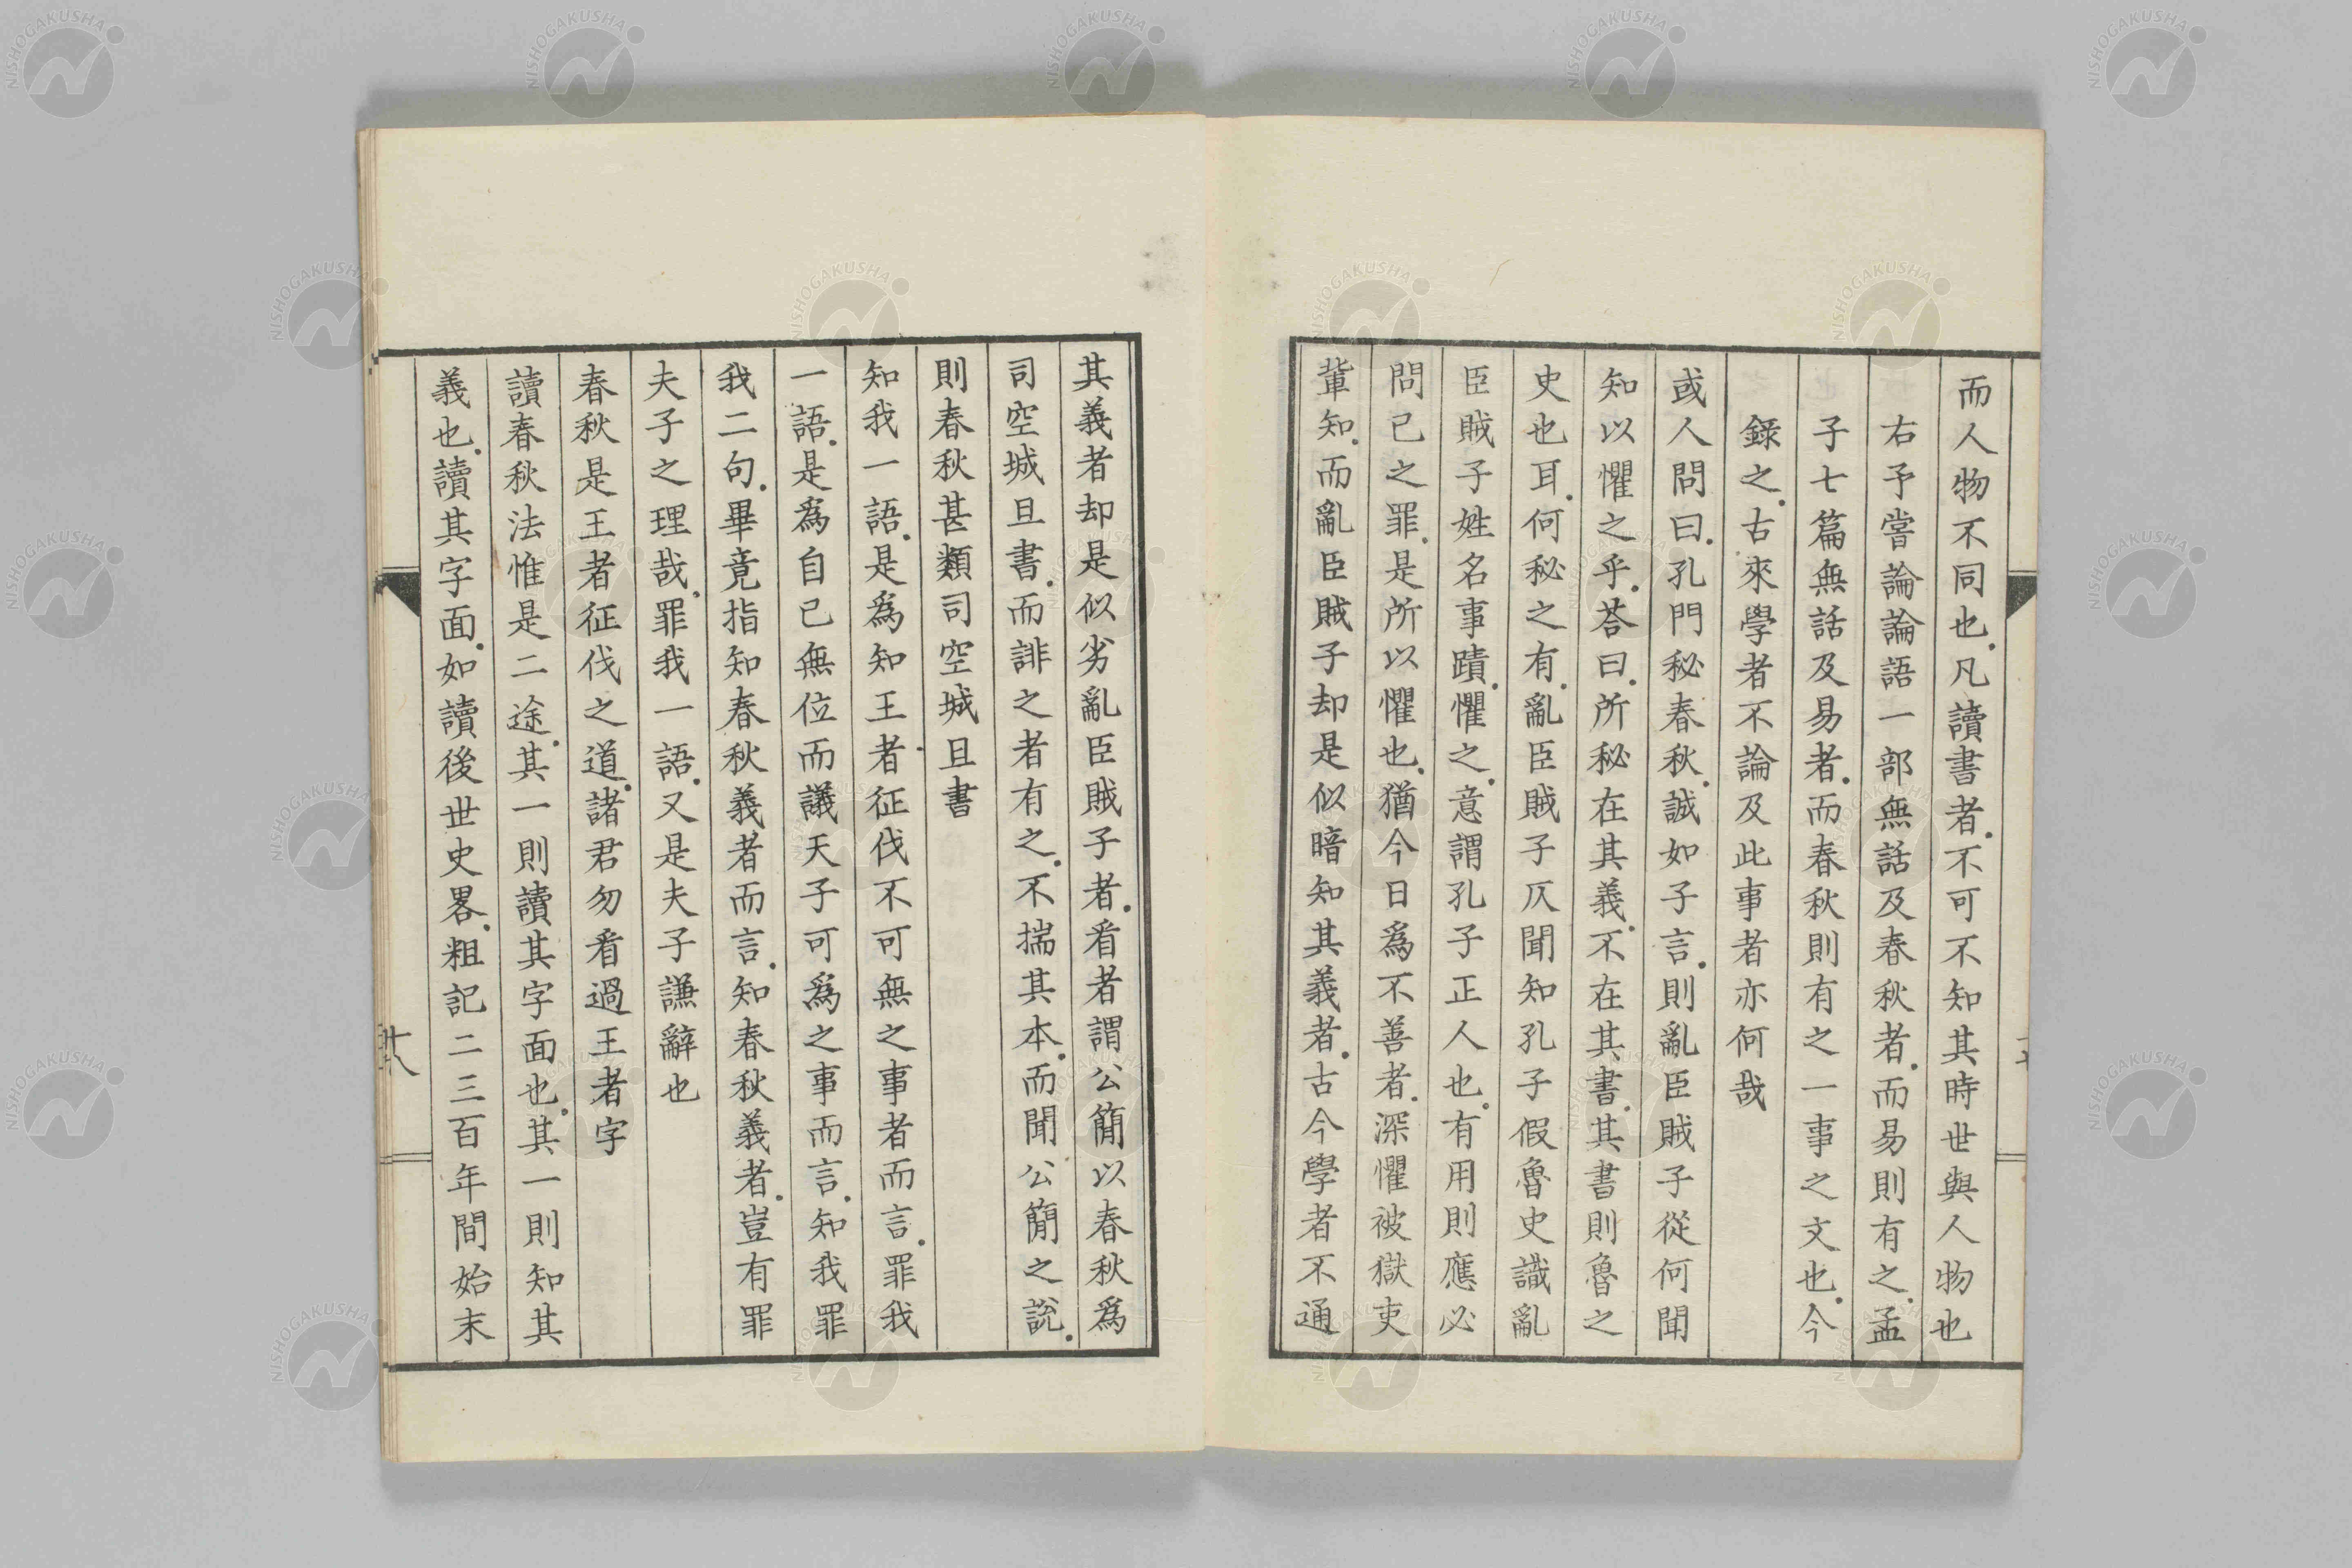 而人物不同也.凡讀書者.不可不知其時世與人物也
右予嘗論論語一部無話及春秋者.而易則有之.孟
子七篇無話及易者.而春秋則有之一事之文也.今
錄之.古來學者不論及此事者亦何哉
或人問曰.孔門秘春秋.誠如子言.則亂臣賊子從何聞
知以懼之乎.荅曰.所秘在其義.不在其書.其書則魯之
史也耳.何秘之有.亂臣賊子仄聞知孔子假魯史識亂
臣賊子姓名事蹟.懼之.意謂孔子正人也.有用則應必
問已之罪.是所以懼也.猶今日為不善者.深懼被獄吏
輩知.而亂臣賊子却是似暗知其義者.古今學者不通
其義者却是似劣亂臣賊子者.看者謂公簡以春秋為
司空城旦書.而誹之者有之.不揣其本.而聞公簡之說.
則春秋甚類司空城旦書
知我一語.是為知王者.征伐不可無之事者而言.罪我
一語.是為自己無位而議天子可為之事而言.知我罪
我二句.畢竟指知春秋義者而言.知春秋義者.豈有罪
夫子之理哉.罪我一語.又是夫子謙辭也
春秋是王者征伐之道.諸君勿看過王者字
讀春秋法惟是二途.其一則讀其字面也.其一則知其
義也.讀其字面.如讀後世史畧.粗記二三百年間始末
廿八
NISHOGAKUSHA